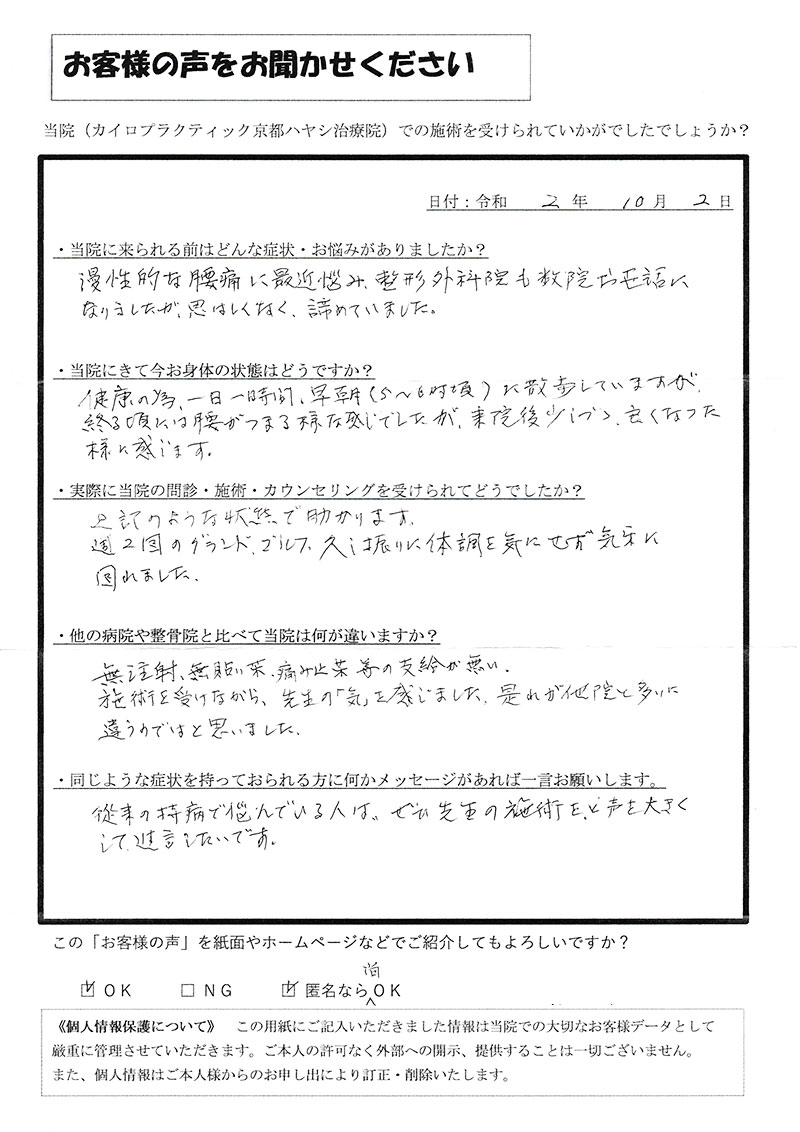 お客様の声をお聞かせください
当院（カイロプラクティック京都ハヤシ治療院）での施術を受けられていかがでしたでしょうか？
日付：令和 2 年 10 月 2 日
・当院に来られる前はどんな症状・お悩みがありましたか？
慢性的な腰痛に最近悩み、整形外科院も数院お世話に
なりましたが、思はしくなく、諦めていました。
・当院にきて今お身体の状態はどうですか？
健康の為、一日一時間、早朝（5～6時頃）に散歩していますが、
終る頃には腰がつまる様な感じでしたが、来院後少しづつ、良くなった
様に感じます。
・実際に当院の問診・施術・カウンセリングを受けられてどうでしたか？
上記のような状態で助かります。
週2回のグランドゴルフ、久し振りに体調を気にせず気楽に
回れました。
・他の病院や整骨院と比べて当院は何が違いますか？
無注射、無貼り薬、痛み止薬等の支給が無い。
施術を受けながら、先生の「気」を感じました。是れが他院と多いに
違うのではと思いました。
・同じような症状を持っておられる方に何かメッセージがあれば一言お願いします。
従来の持病で悩んでいる人は、ぜひ先生の施術を、と声を大きく
して進言したいです。
この「お客様の声」を紙面やホームページなどでご紹介してもよろしいですか？
☑ OK □ NG ☑ 匿名なら尚OK
《個人情報保護について》 この用紙にご記入いただきました情報は当院での大切なお客様データとして
厳重に管理させていただきます。ご本人の許可なく外部への開示、提供することは一切ございません。
また、個人情報はご本人様からのお申し出により訂正・削除いたします。